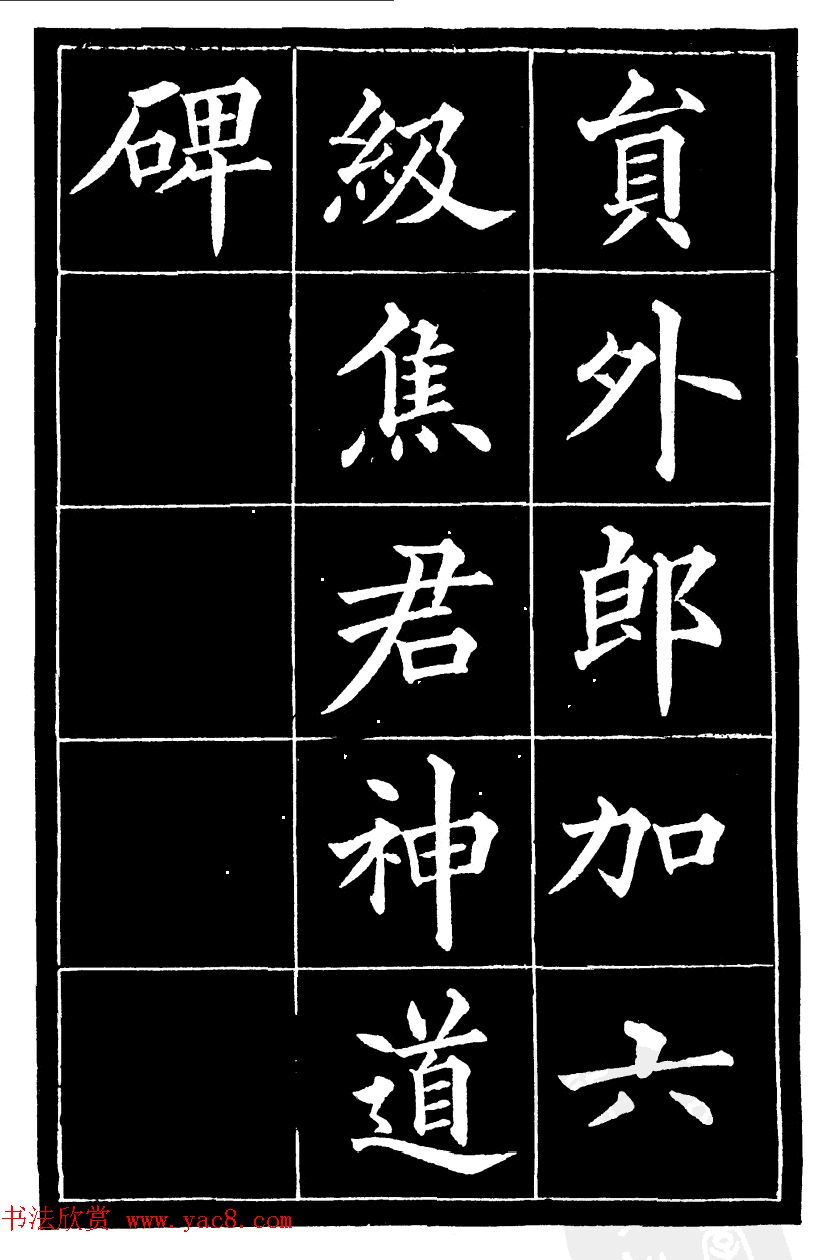 員外郎加六
級焦君神道
碑
书法欣赏 www.yac8.com